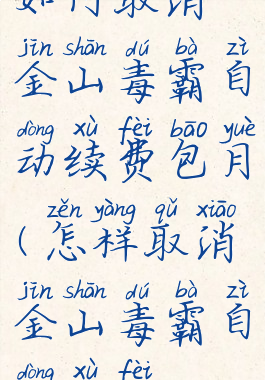 如何取消
jīn shān dú bà zì
金山毒霸自
dòng xù fèi bāo yuè
动续费包月
zěn yàng qǔ xiāo
（怎样取消
jīn shān dú bà zì
金山毒霸自
dòng xù fèi